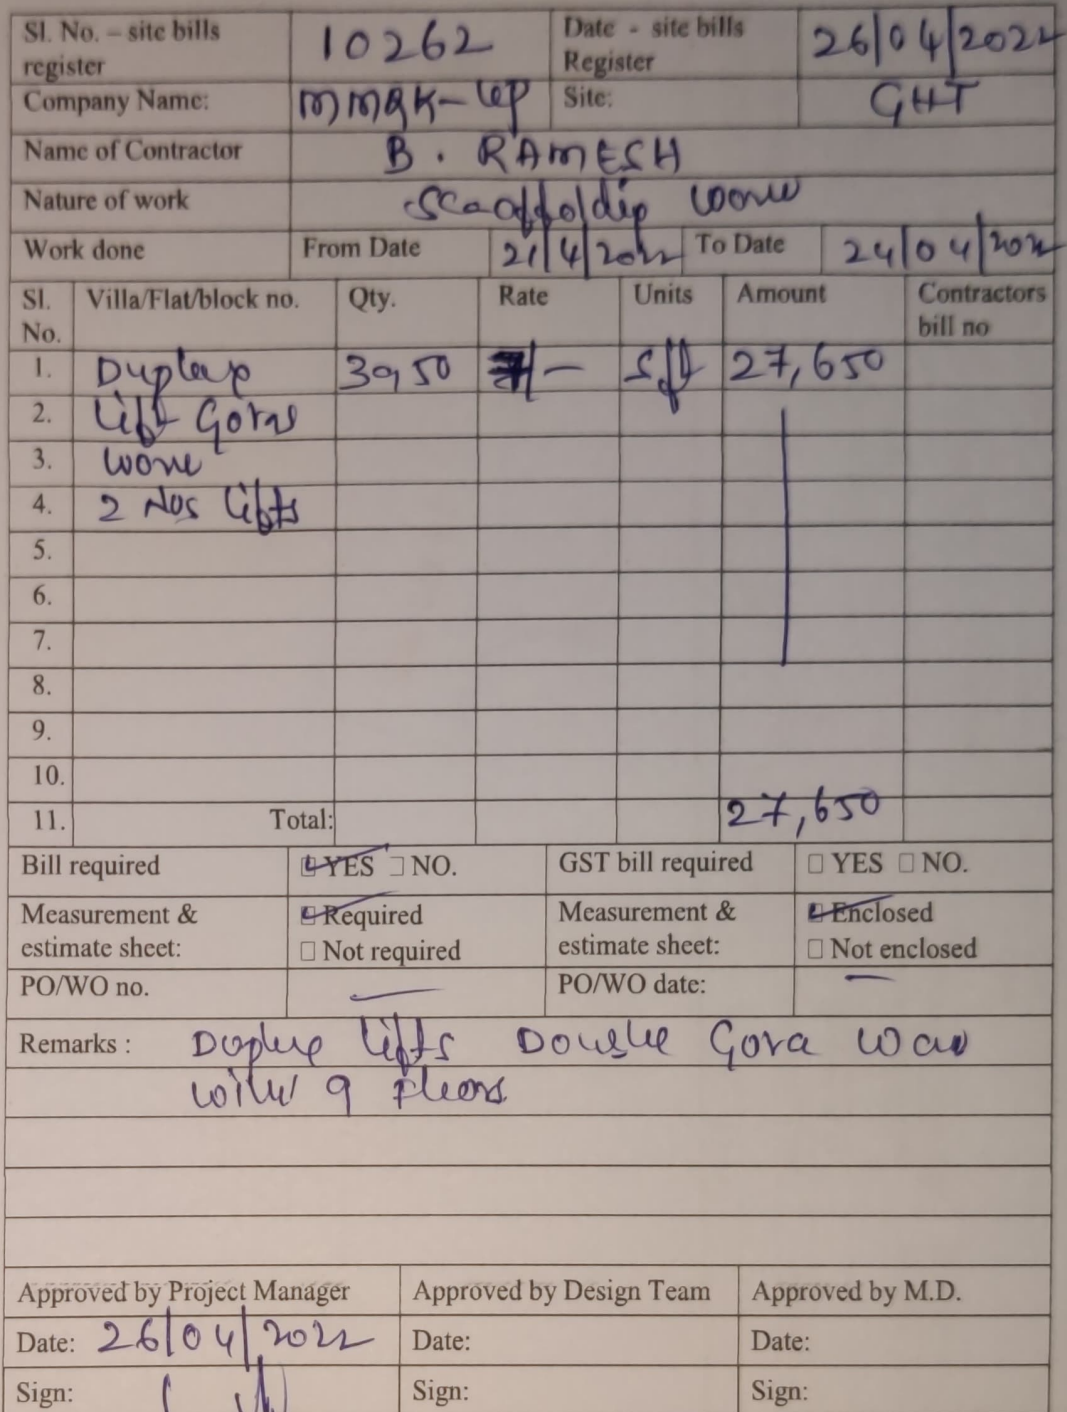 Sl. No. – site bills register 10262 Date - site bills Register 26/04/2022
Company Name: MMRK-LLP Site: GHT
Name of Contractor B. RAMESH
Nature of work Scaffoldip work
Work done From Date 21/4/2022 To Date 24/04/2022
Sl. No. Villa/Flat/block no. Qty. Rate Units Amount Contractors bill no
1. Duplex 3950 7/- sft 27,650
2. lift Goras
3. work
4. 2 Nos lifts
5.
6.
7.
8.
9.
10.
11. Total: 27,650
Bill required ☑ YES ☐ NO. GST bill required ☐ YES ☐ NO.
Measurement & estimate sheet: ☑ Required ☐ Not required Measurement & estimate sheet: ☑ Enclosed ☐ Not enclosed
PO/WO no. — PO/WO date: —
Remarks : Duplex lifts Double Gora work
with 9 floors
Approved by Project Manager Approved by Design Team Approved by M.D.
Date: 26/04/2022 Date: Date:
Sign: Sign: Sign: